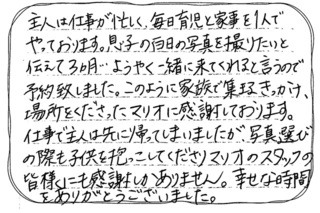 主人は仕事が忙しく、毎日育児と家事を1人で
やっております。息子の百日の写真を撮りたいと
伝えて3カ月…ようやく一緒に来てくれると言うので
予約致しました。このように家族で集まるきっかけ、
場所をくださったマリオに感謝しております。
仕事で主人は先に帰ってしまいましたが、写真選び
の際も子供を抱っこしてくださりマリオのスタッフの
皆様にも感謝しかありません。幸せな時間
をありがとうございました。